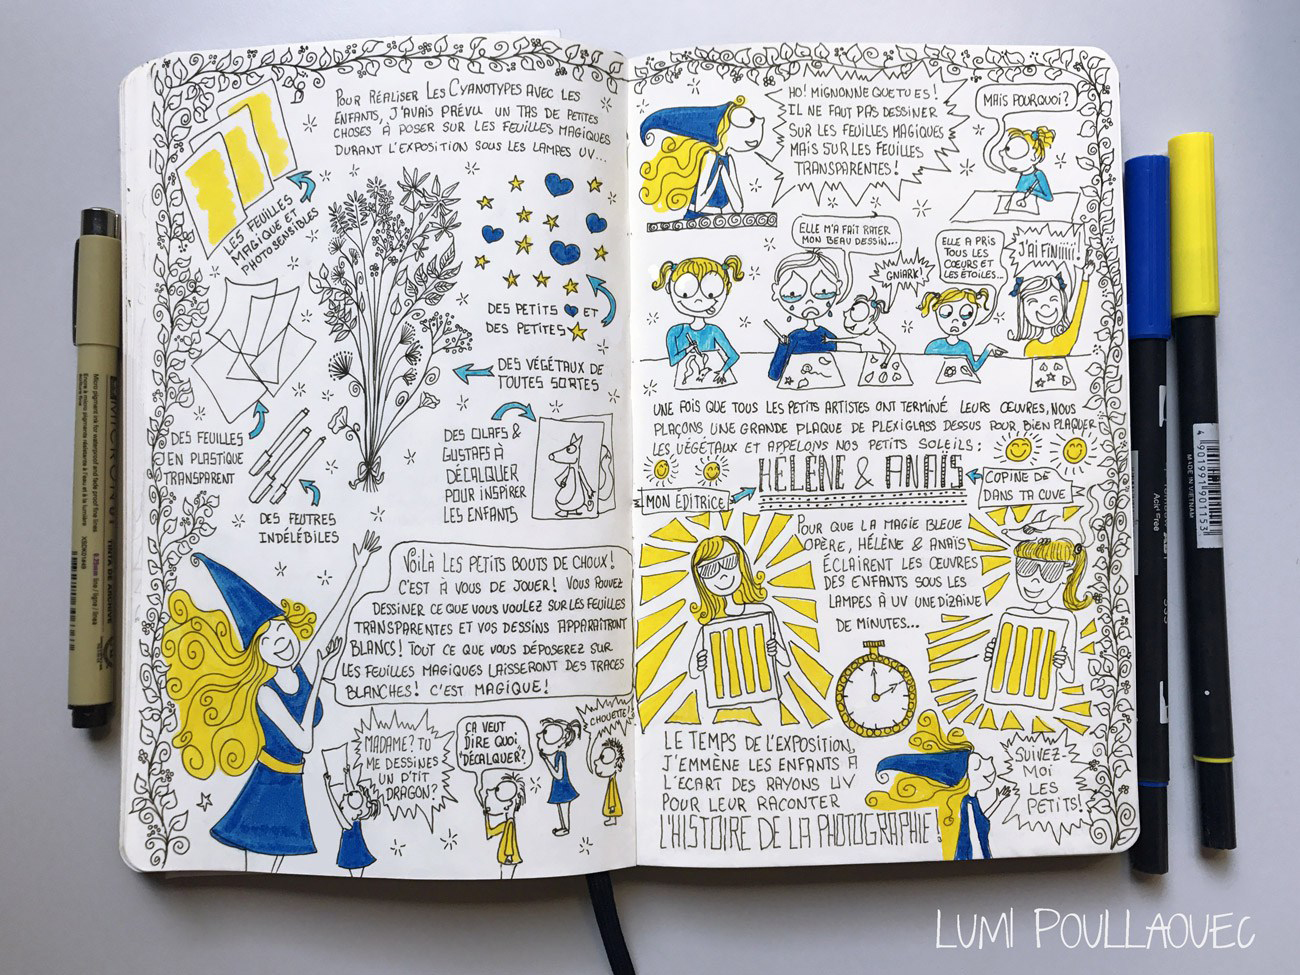 Pour réaliser Les Cyanotypes avec les
enfants, j'avais prévu un tas de petites
choses à poser sur les feuilles magiques
durant l'exposition sous les lampes UV...
Les feuilles
magique et
photosensibles
Des petits et
des petites
Des végétaux de
toutes sortes
Des feuilles
en plastique
transparent
Des feutres
indélébiles
Des Olafs &
Gustafs à
décalquer
pour inspirer
les enfants
Voilà les petits bouts de choux !
C'est à vous de jouer ! Vous pouvez
dessiner ce que vous voulez sur les feuilles
transparentes et vos dessins apparaîtront
blancs ! Tout ce que vous déposerez sur
les feuilles magiques laisseront des traces
blanches ! C'est magique !
Madame ? Tu
me dessines
un p'tit
dragon ?
Ça veut
dire quoi,
"décalquer" ?
Chouette !
Ho ! Mignonne que tu es !
Il ne faut pas dessiner
sur les feuilles magiques
mais sur les feuilles
transparentes !
Mais pourquoi ?
Elle m'a fait rater
mon beau dessin...
Gniark !
Elle a pris
tous les
cœurs et
les étoiles...
J'ai finiiiii !
Une fois que tous les petits artistes ont terminé leurs œuvres, nous
plaçons une grande plaque de plexiglass dessus pour bien plaquer
les végétaux et appelons nos petits soleils :
HÉLÈNE & ANAÏS
Mon éditrice
Copine de
dans ta cuve
Pour que la magie bleue
opère, Hélène & Anaïs
éclairent les œuvres
des enfants sous les
lampes à UV une dizaine
de minutes...
Le temps de l'exposition,
j'emmène les enfants à
l'écart des rayons UV
pour leur raconter
l'histoire de la photographie !
Suivez-
moi
les
petits !
4901991901153
MADE IN VIETNAM
Acid Free
LUMI POULLAOUEC